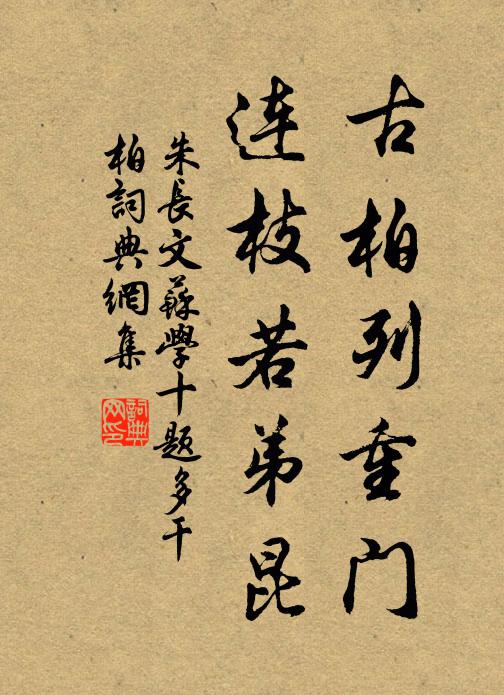 古柏列重门
连枝若弟昆
朱長文蘇學十题多干
柏詞典網集
詞典网印